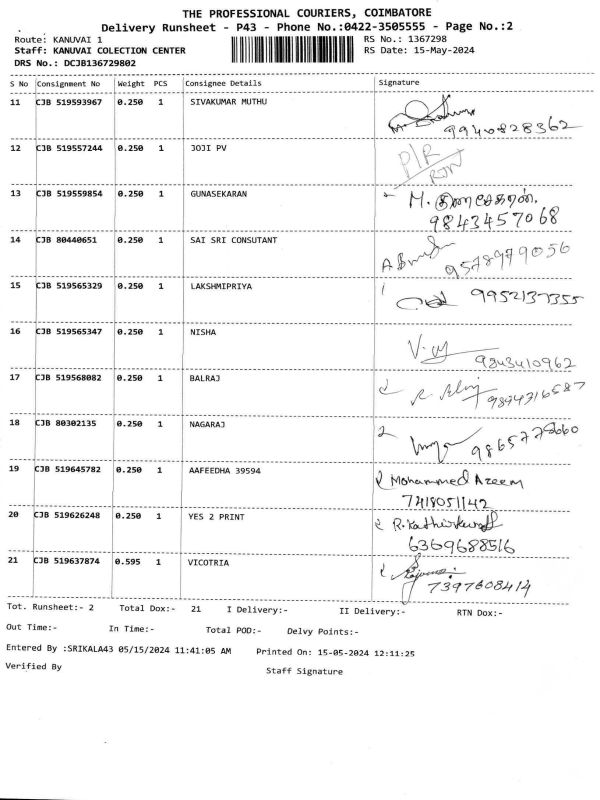 THE PROFESSIONAL COURIERS, COIMBATORE
Delivery Runsheet - P43 - Phone No.:0422-3505555 - Page No.:2
Route: KANUVAI 1 RS No.: 1367298
Staff: KANUVAI COLECTION CENTER RS Date: 15-May-2024
DRS No.: DCJB136729802
S No Consignment No Weight PCS Consignee Details Signature
11 CJB 519593967 0.250 1 SIVAKUMAR MUTHU
9940828362
12 CJB 519557244 0.250 1 JOJI PV P/R
13 CJB 519559854 0.250 1 GUNASEKARAN M. குணசேகரன்.
9843457068
14 CJB 80440651 0.250 1 SAI SRI CONSUTANT
9578979056
15 CJB 519565329 0.250 1 LAKSHMIPRIYA
9952137355
16 CJB 519565347 0.250 1 NISHA
9843410962
17 CJB 519568082 0.250 1 BALRAJ
9894716587
18 CJB 80302135 0.250 1 NAGARAJ
19 CJB 519645782 0.250 1 AAFEEDHA 39594 Mohammed Azeem
7418051142
20 CJB 519626248 0.250 1 YES 2 PRINT
6369688516
21 CJB 519637874 0.595 1 VICOTRIA
7397608414
Tot. Runsheet:- 2 Total Dox:- 21 I Delivery:- II Delivery:- RTN Dox:-
Out Time:- In Time:- Total POD:- Delvy Points:-
Entered By :SRIKALA43 05/15/2024 11:41:05 AM Printed On: 15-05-2024 12:11:25
Verified By Staff Signature